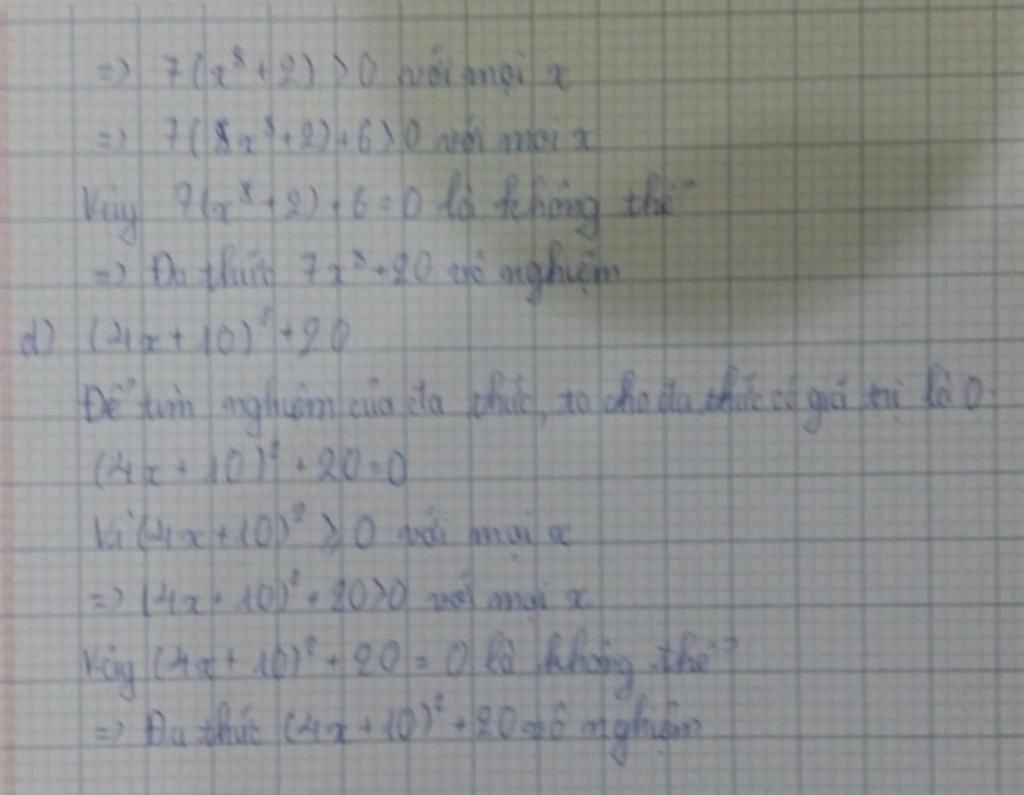 => 7(x⁸+2) > 0 với mọi x
=> 7(8x⁸+2)+6>0 với mọi x
Vậy 7(x⁸+2)+6=0 là không thể
=> Đa thức 7x⁸+20 vô nghiệm
d) (4x+10)⁸+20
Để tìm nghiệm của đa thức, ta cho đa thức có giá trị là 0:
(4x+10)⁸+20=0
Vì (4x+10)⁸ ≥ 0 với mọi x
=> (4x+10)⁸+20>0 với mọi x
Vậy (4x+10)⁸+20=0 là không thể
=> Đa thức (4x+10)⁸+20 vô nghiệm